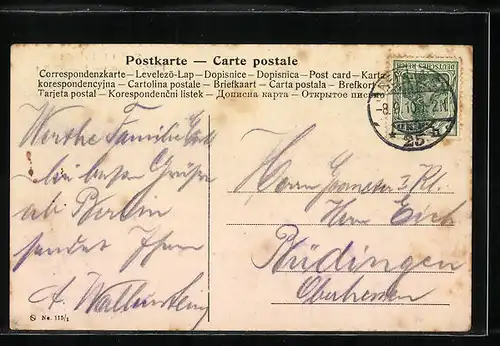 Postkarte — Carte postale
Correspondenzkarte – Levelezö-Lap – Dopisnice – Dopisnica – Post card – Karta
korespondencyjna – Cartolina postale – Briefkaart – Carta postala – Brefkort
Tarjeta postal – Korespondenční listek – Дописна карта – Открытое
DEUTSCHES REICH
-8.9.10
25
Werthe Familie
die besten Grüße
ab Berlin
sendet Ihnen
A. Wallenstein
Herrn
Herrn Erich
Büdingen
Oberhessen
No. 115/1